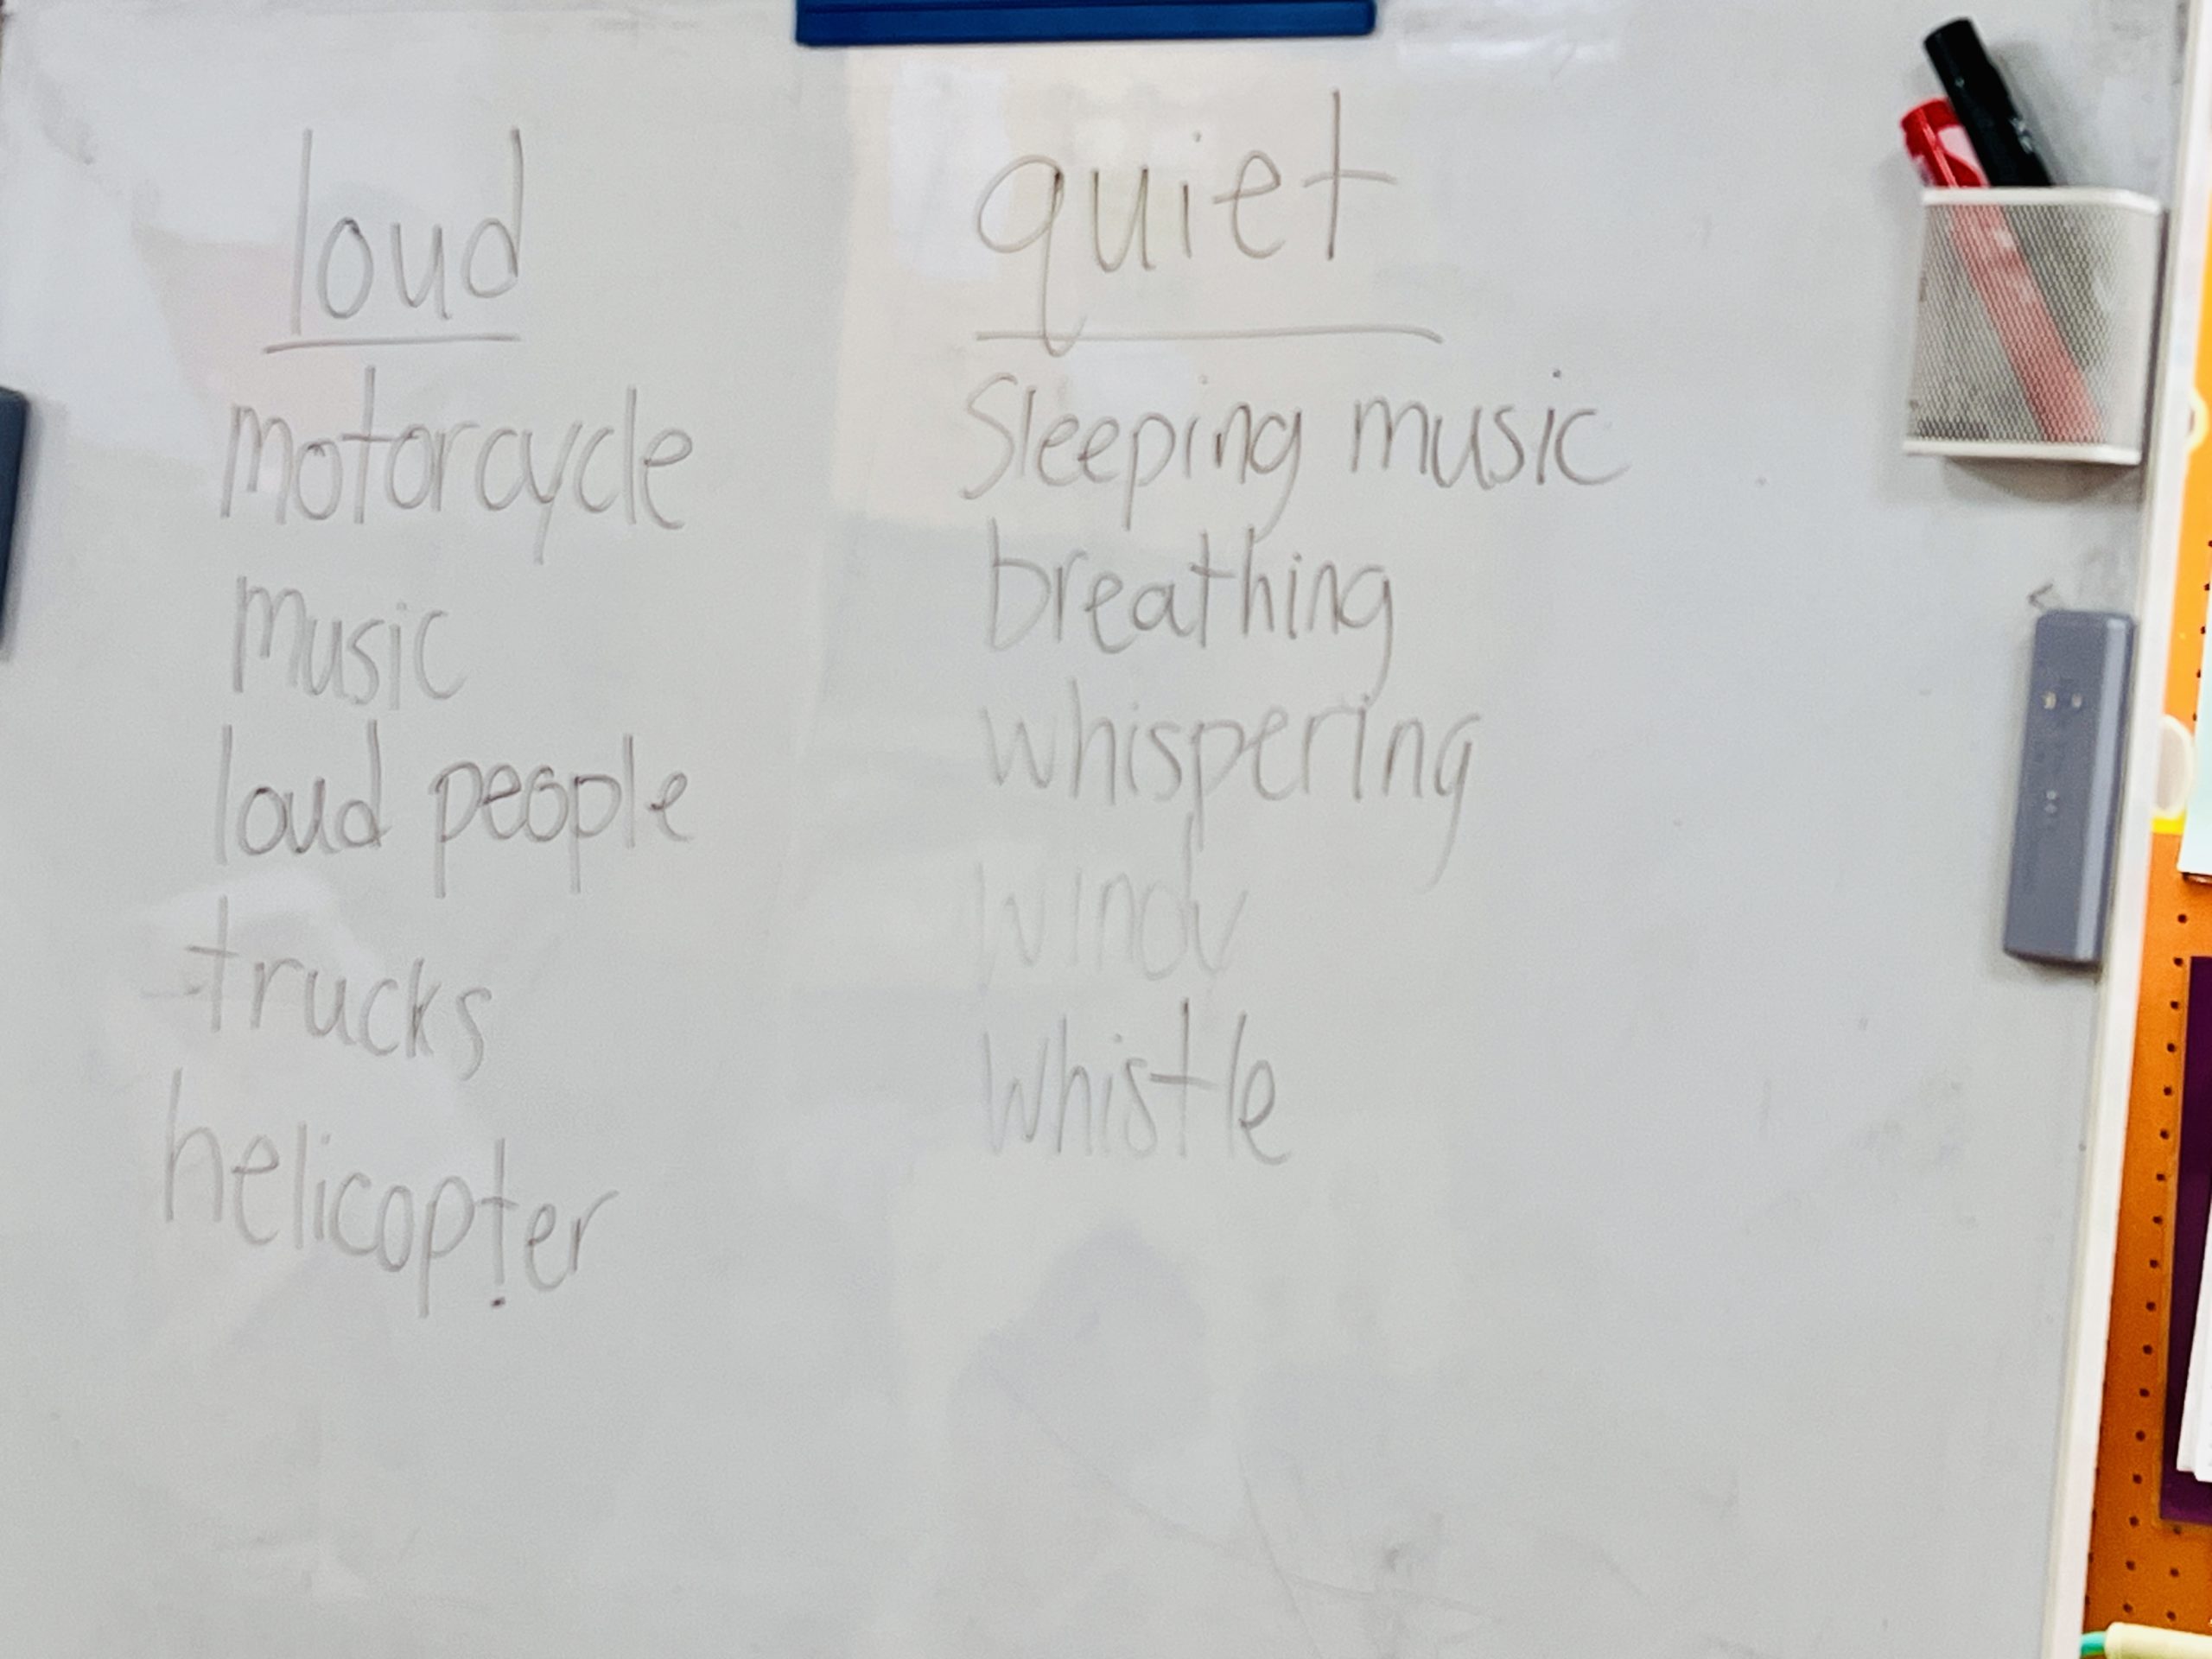 loud
motorcycle
music
loud people
trucks
helicopter
quiet
Sleeping music
breathing
whispering
windy
whistle